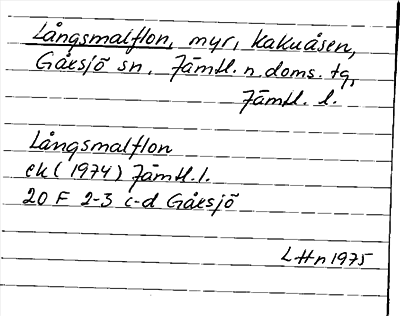 Långsmalflon, myr, Kakuåsen,
Gåxsjö sn, Jämtl. n. doms. tg,
Jämtl. l.
Långsmalflon
ek (1974) Jämtl. l.
20 F 2-3 c-d Gåxsjö
LHn 1975